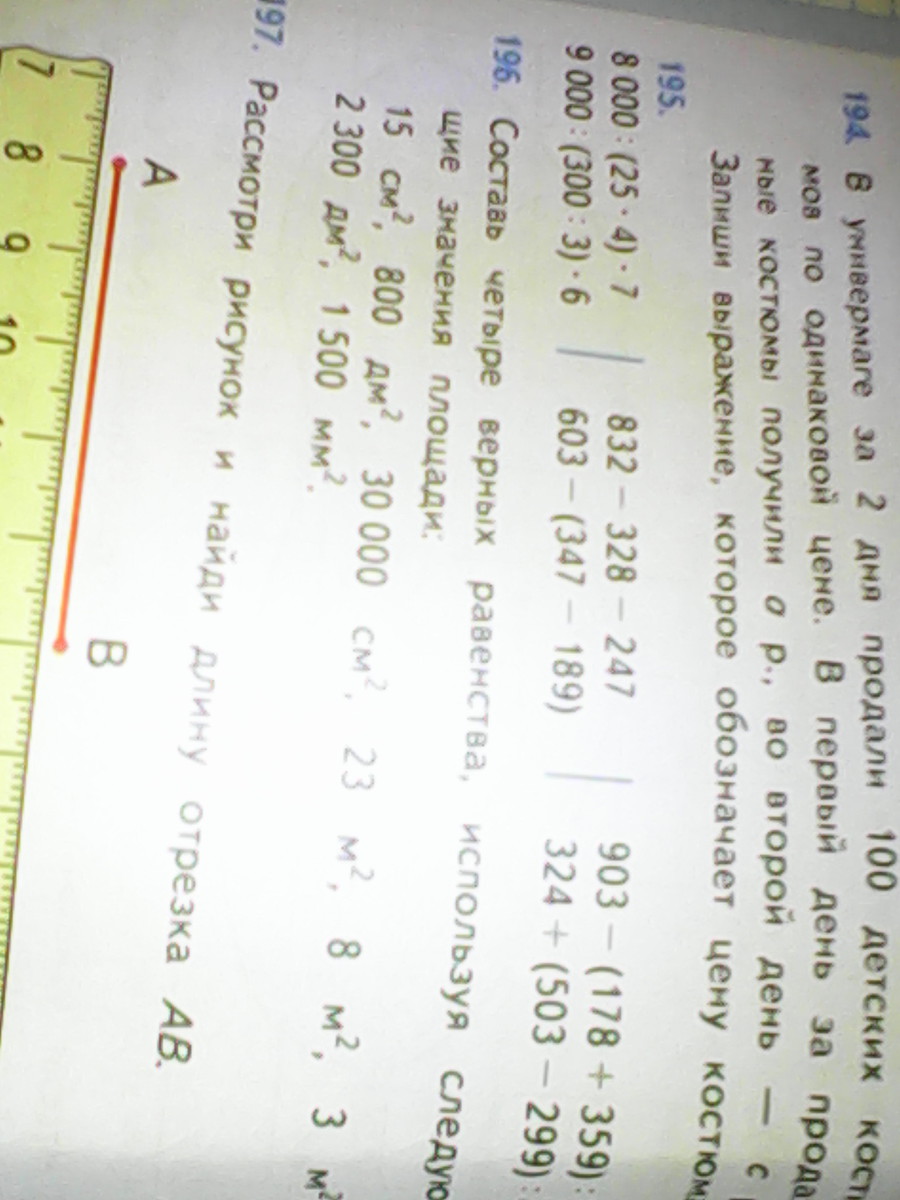 194. В универмаге за 2 дня продали 100 детских кост
мов по одинаковой цене. В первый день за прода
ные костюмы получили а р., во второй день — с
Запиши выражение, которое обозначает цену костюм
195.
8 000 : (25 · 4) · 7 | 832 − 328 − 247 | 903 − (178 + 359) :
9 000 : (300 : 3) · 6 | 603 − (347 − 189) | 324 + (503 − 299) :
196. Составь четыре верных равенства, используя следую
щие значения площади:
15 см², 800 дм², 30 000 см², 23 м², 8 м², 3 м²
2 300 дм², 1 500 мм².
197. Рассмотри рисунок и найди длину отрезка АВ.
А В
7 8 9 10